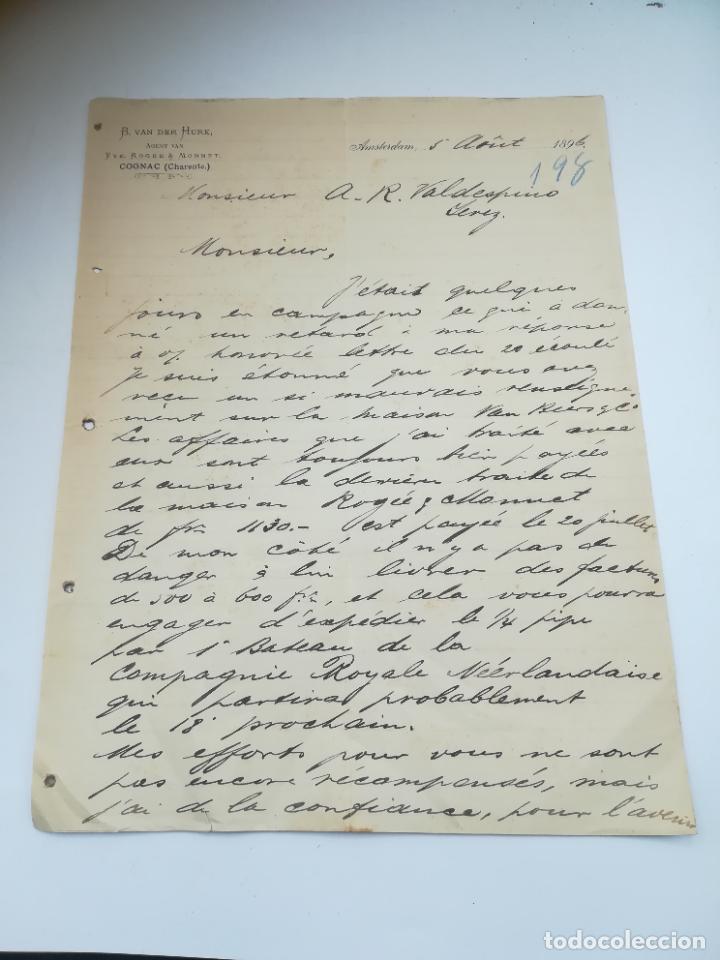 B. VAN DER HURK,
AGENT VAN
COGNAC (Charente.)
Amsterdam, 5 Août 1896
198
Monsieur A. R. Valdespino
Jerez.
Monsieur,
J'étais quelques
jours en campagne ce qui à don-
né un retard à ma réponse
à honorée lettre du 20 écoulé
Je suis étonné que vous avez
reçu un si mauvais renseigne-
ment sur la maison Van & Co
Les affaires que j'ai traité avec
eux sont toujours bien payées
et aussi la dernière traite de
la maison Rogée & Monnet
de frs 1130.- est payée le 20 juillet
De mon côté il n'y a pas de
danger à lui livrer des factures
de 500 à 600 frs, et cela vous pourra
engager d'expédier le 1/4 pipe
par 1r Bateau de la
Compagnie Royale Néérlandaise
qui partira probablement
le 18 prochain.
Mes efforts pour vous ne sont
pas encore récompensés, mais
j'ai de la confiance, pour l'avenir
todocoleccion
todocoleccion.net